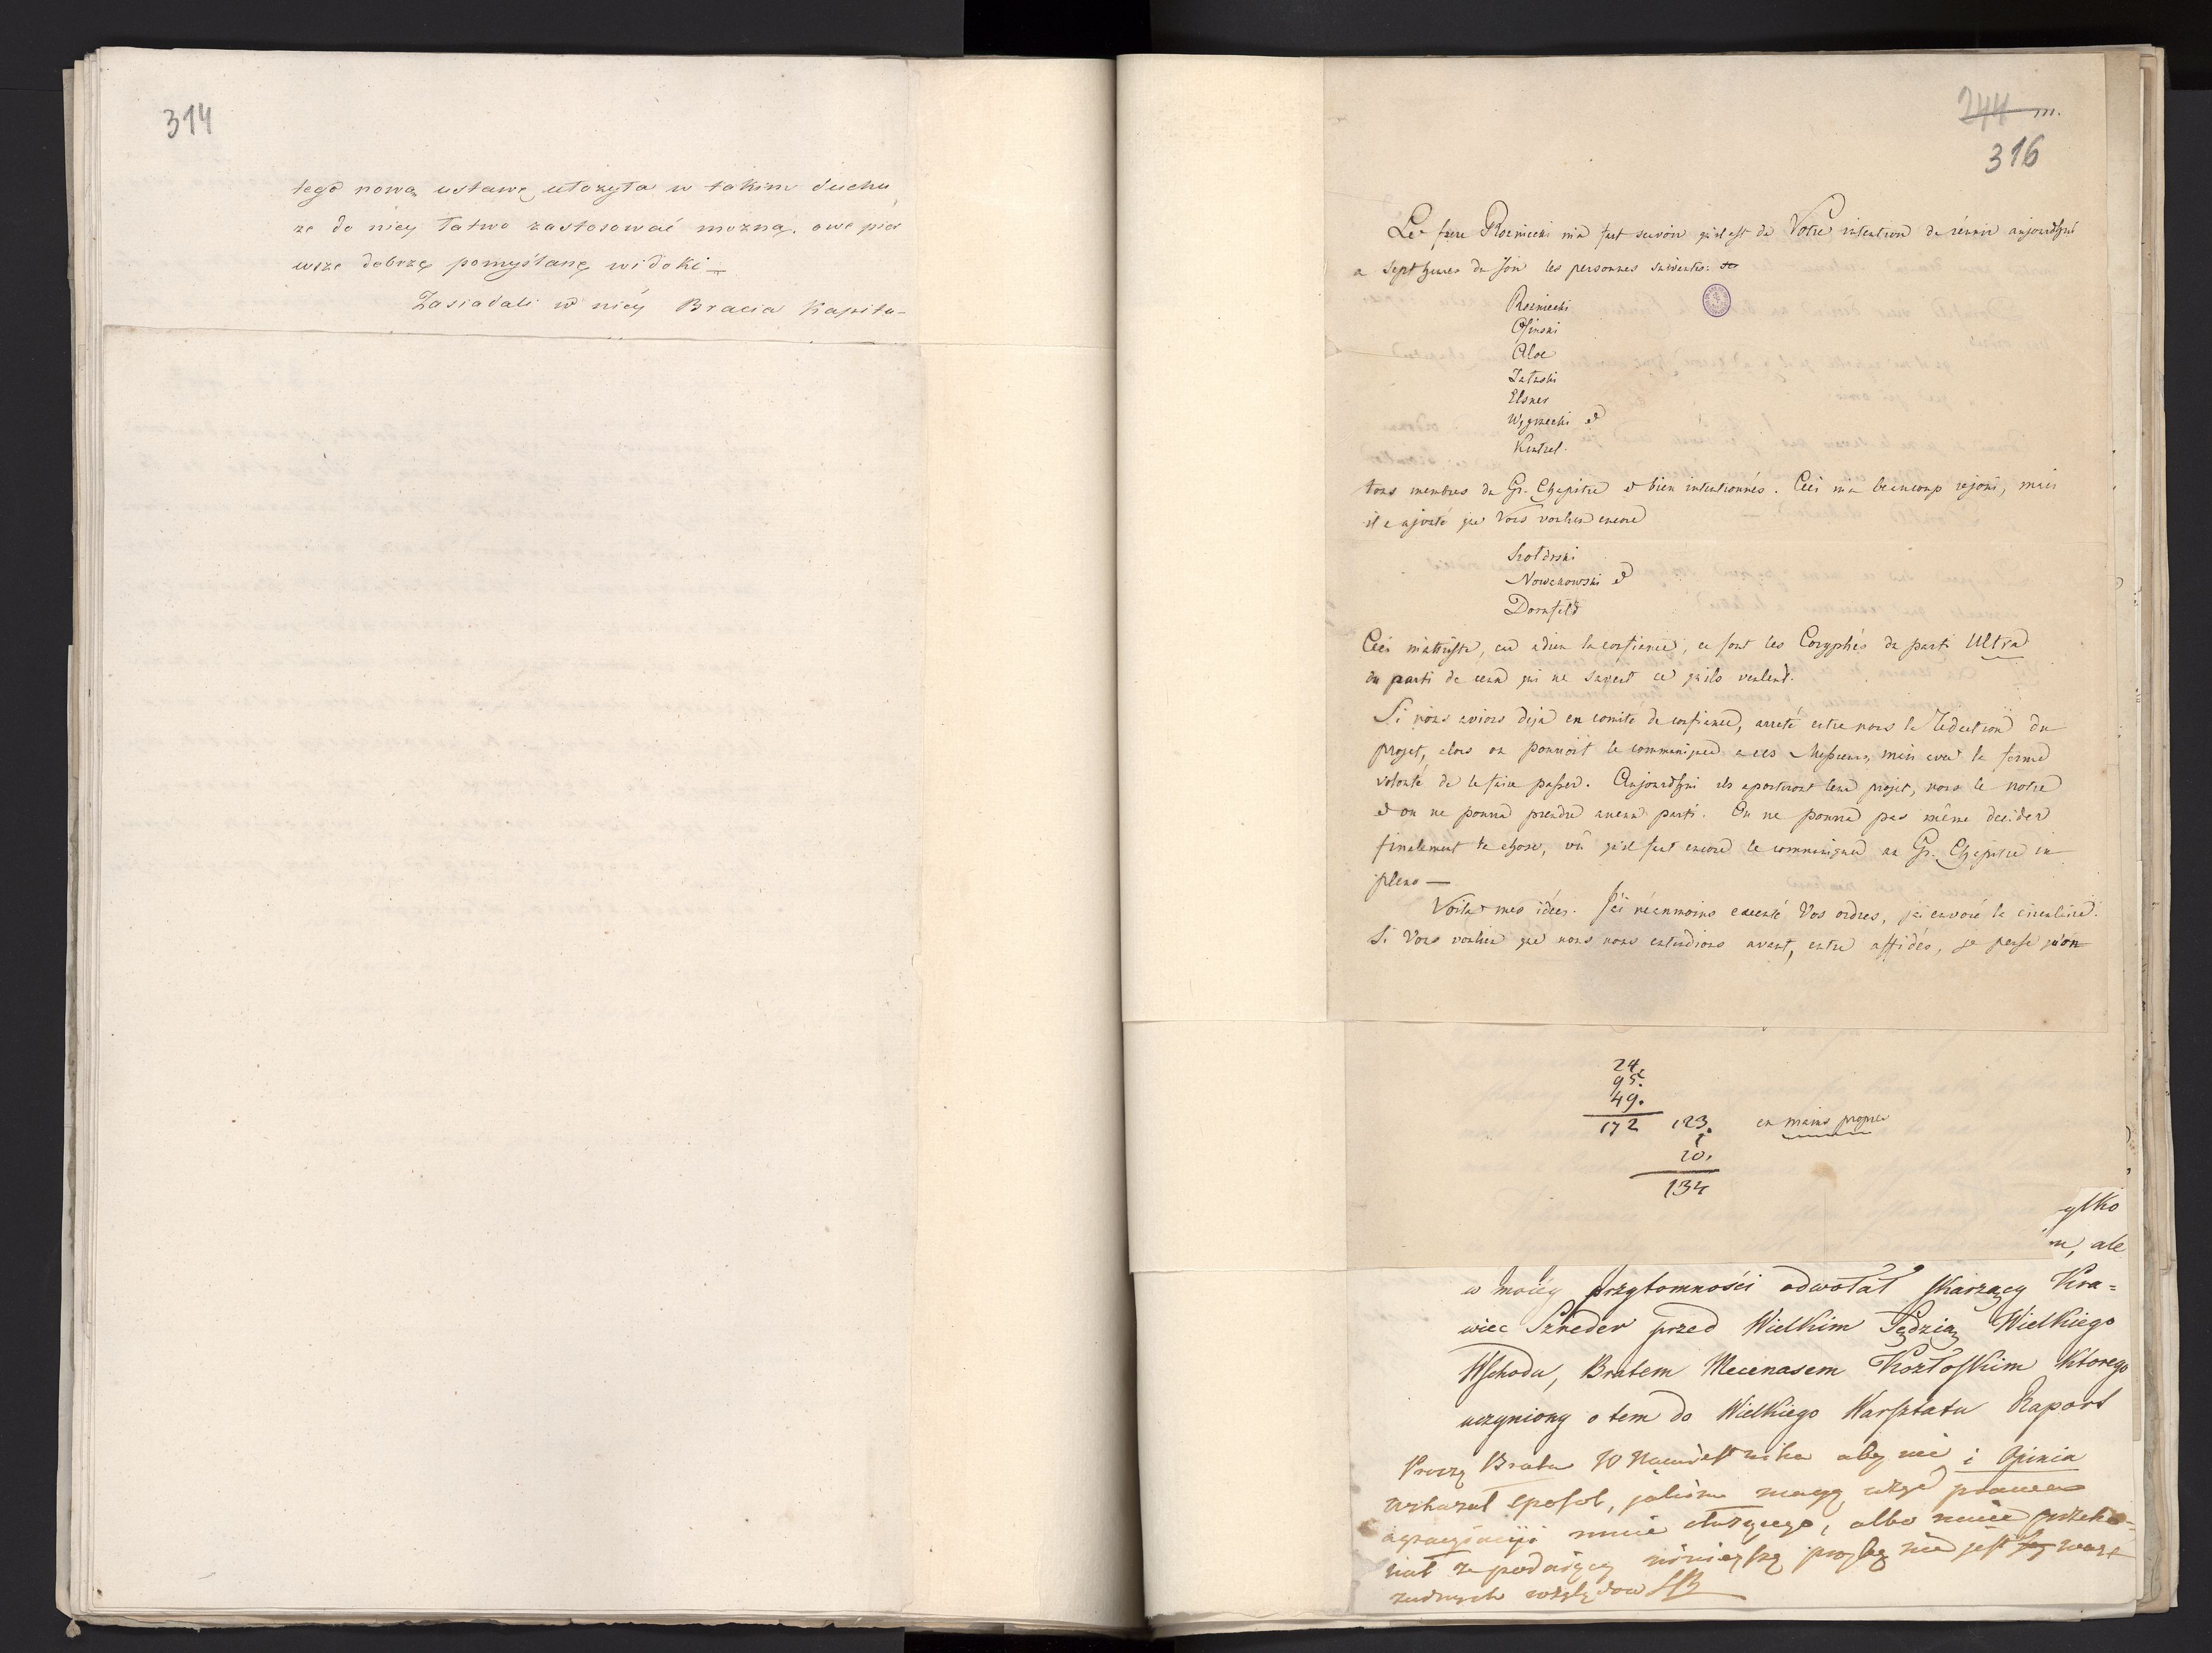 314
tego nową ustawę ułożyła w takim duchu,
że do niey łatwo zastosować można, owe pier
wsze dobrze pomyślane widoki —
Zasiadali w niéy Bracia Kapitu-
244 m.
316
Le frere Rozniecki m'a fait savoir qu'il est de Votre intention de réunir aujourdhui
a Sept heures du Soir les personnes suivantes:
Rozniecki
Osinski
Aloe
Załuski
Elsner
Węgrzecki et
Kentzel.
tous membres du Gr. Chapitre et bien intentionnés. Ceci m'a beaucoup rejoui, mais
il a ajouté que Vous vouliez encore
Szołdrski
Nowakowski et
Dornfeld
Ceci m'attriste, car adieu la confiance, ce sont les Coryphés du parti Ultra
du parti de ceux qui ne savent ce qu'ils veulent.
Si nous avions deja en comité de confiance, arreté entre nous la Redaction du
projet, alors on pourroit le communiquer a ces Messieurs, mais avec la ferme
volonté de le faire passer. Aujourdhui ils aporteront leur projet, nous le notre
et on ne pourra prendre aucun parti. On ne pourra pas même decider
finalement la chose, vû qu'il faut encore le communiquer au Gr. Chapitre in
pleno —
Voila mes idées. J'ai néanmoins executé Vos ordres, j'ai envoié la circulaire.
Si Vous vouliez que nous nous entendions avant, entre affidés, je pense qu'on
24.
95.
49.
172 123. en mains propres
1
10.
134
ylko
m, ale
w moiéy przytomności odwołał skarzący Kra=
wiec Szneder przed Wielkim Sędzią Wielkiego
Wschodu, Bratem Mecenasem Kozłoskim którego
uczyniony o tem do Wielkiego Warsztatu Raport
Proszę Brata W Namiestnika aby mi i Opinia
wskazał sposob, jakim mogę użyć prawa
mnie służącego, albo mnie przeko=
nał ze podaiący ninieyszą prozbę nie jest wart
zadnych względow